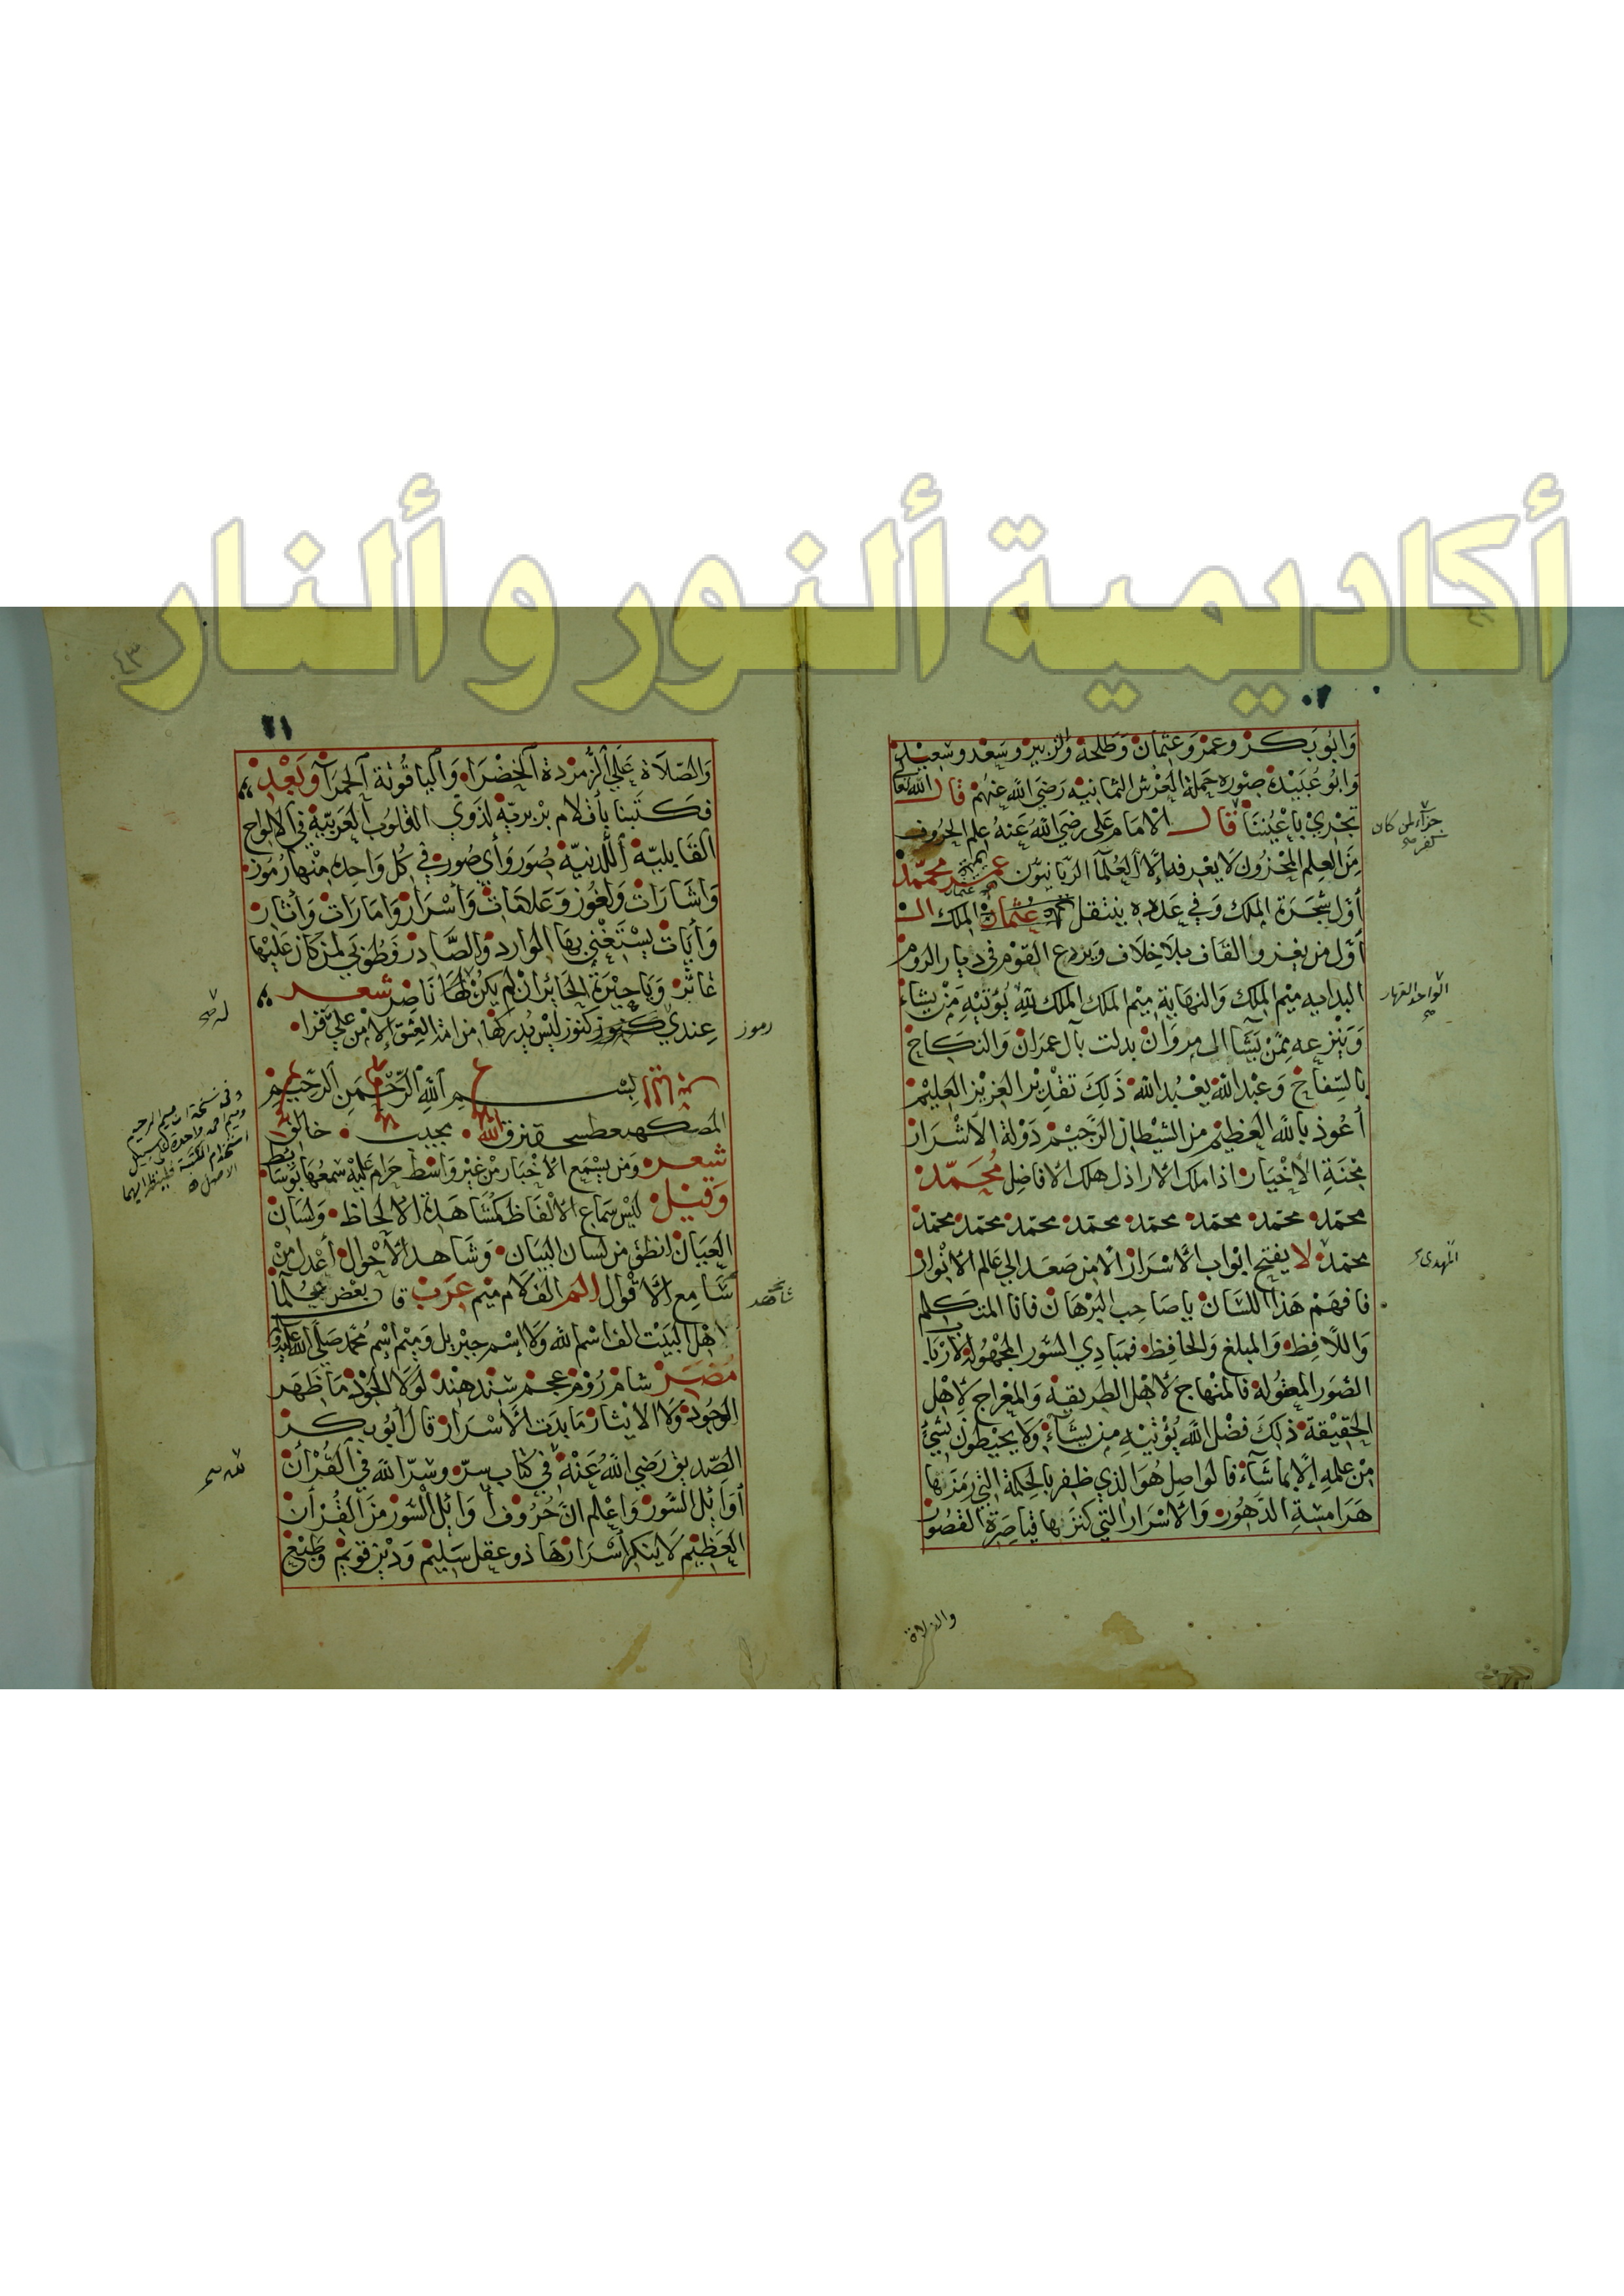 أكاديمية ألنور و ألنار
وَابُو بَكر وعمر وَعثمان وَطلحة والزبير وسَعْد وسَعِيْد
وَابُو عُبَيْدة صورة حَملة العَرْش الثمانية رَضِيَ الله عَنهُمْ قال الله تعالى
تجْري بأعْيُننا قال الامام على رضي الله عَنهُ علم الحروف
جزآء لمن كان كفر صح
مِنَ العِلم المخزُون لا يعْرفه إلا العُلمآ الربانيوّن محمّد
أوّل شجَرَة الملك وَفي عَدده ينتقل عثمان الملك
أوّل من يغزو القاف بلا خِلاف وَيردع القوْم فى ديار الروم
البداية ميْم الملك وَالنهاية ميْم الملك الملك لله يُؤتيْهِ مَنْ يشاء
الواحد القهار صح
وَيَنْزعه ممّنْ يَشَآ الى مروان بدلت بآل عمرَان وَالنكاح
بالسِّفاح وَعبْد الله يعْبُد الله ذَلِكَ تقْدِيْر العَزيْز العَليْم
أعُوذ بالله العَظيْم من الشيْطان الرّجيْم دَوْلة الاشْرَار
مِحْنَةِ الأخْيَار اذا ملك الأراذل هلك الأفاضِل مُحَمّد
محمّد محمّد محمّد محمّد محمّد محمّد محمّد محمّد
محمّد لا يفتح ابْواب الأسْرَار الا من صَعَد الى عَالم الأنوار
المهدى
فافهَمْ هَذا اللسَان يا صَاحِب البُرْهَان فانا المتكلم
وَاللافِظ وَالمبلغ وَالحَافِظ فمبَادِي السُّور المجْهُولة لأرباب
الصُّوَر المعقولة فالمنهاج لأهْل الطريقة وَالمعْراج لأهْل
الحَقِيْقة ذلِكَ فضْل الله يُؤتيْهِ من يشآء وَلا يحيْطونَ بشيْ
مِنْ علمِهِ إلا بما شآء فالوَاصِل هُوَ الذي ظفر بالحِكمة التي رَمزَها
هَرَامسَةِ الدهُور وَالأسْرَار التي كنزَها قياصِرَة القصُور
والصلاة
٤٣
وَالصّلاة عَلى الزمردة الخضرَاء وَاليَاقُوتة الحمرآ وبَعْد
فكتبنا بأقلام بربريّة لذوي القلوُب العَربيّة في الالواح
القابليّة اللدنيّة صُوَر وَأي صُور في كل وَاحدة منها رُموز
وَاشارَات وَلغوز وَعَلامَات وَأسْرَار وَامَارَات وَأثار
وَأيات يسْتغنى بها الوارد وَالصّادر فَطُوبَى لمن كان عَلَيْها
عَاثر وَيا حِيْرَة الحائر ان لم يكنْ لهَا نَاضِر شعر
عِندي كنوز ليْسَ يُدركها من امّه العِشق إلا مَن عليَّ قرا
رموز
بسم الله الرّحْمَن الرحيم
الله مجيب خالق
شعر وَمَن يسْمَع الأخبار من غيْر وَاسط حَرام عَليْه سمعُها بوسايط
وَقيْل ليْسَ سَماع الألفاظ كمشاهَدة الالحاظ وَلسَان
العيَان انطق من لسان البَيَان وَشاهد الأحْوال أعْدل منْ
سَّامِع الأقْوال الم الف لام ميم عَرَب قال بعْض عُلمآ
اهْل البَيْت الف اسْم الله وَلام اسْم جبْريل وَميْم اسْم مُحمد صَلى الله عليه وسلم
مُضَر شام رُوم عجم سند هند لوْلا الجُوْد مَا ظَهَر
الوجُود وَلا الايثار مَا بدَت الأسْرار قال أبُو بكر
الصّديق رَضي الله عَنْه في كل كتاب سرّ وسرّ الله في القُرْأن
أوَائل السّور وَاعْلم ان حُرُوف أوَائل السّور منَ القُرْأن
العَظِيم لا ينكر أسْرَارهَا ذو عقل سَليْم وَدْين قويْم وَطَبْع